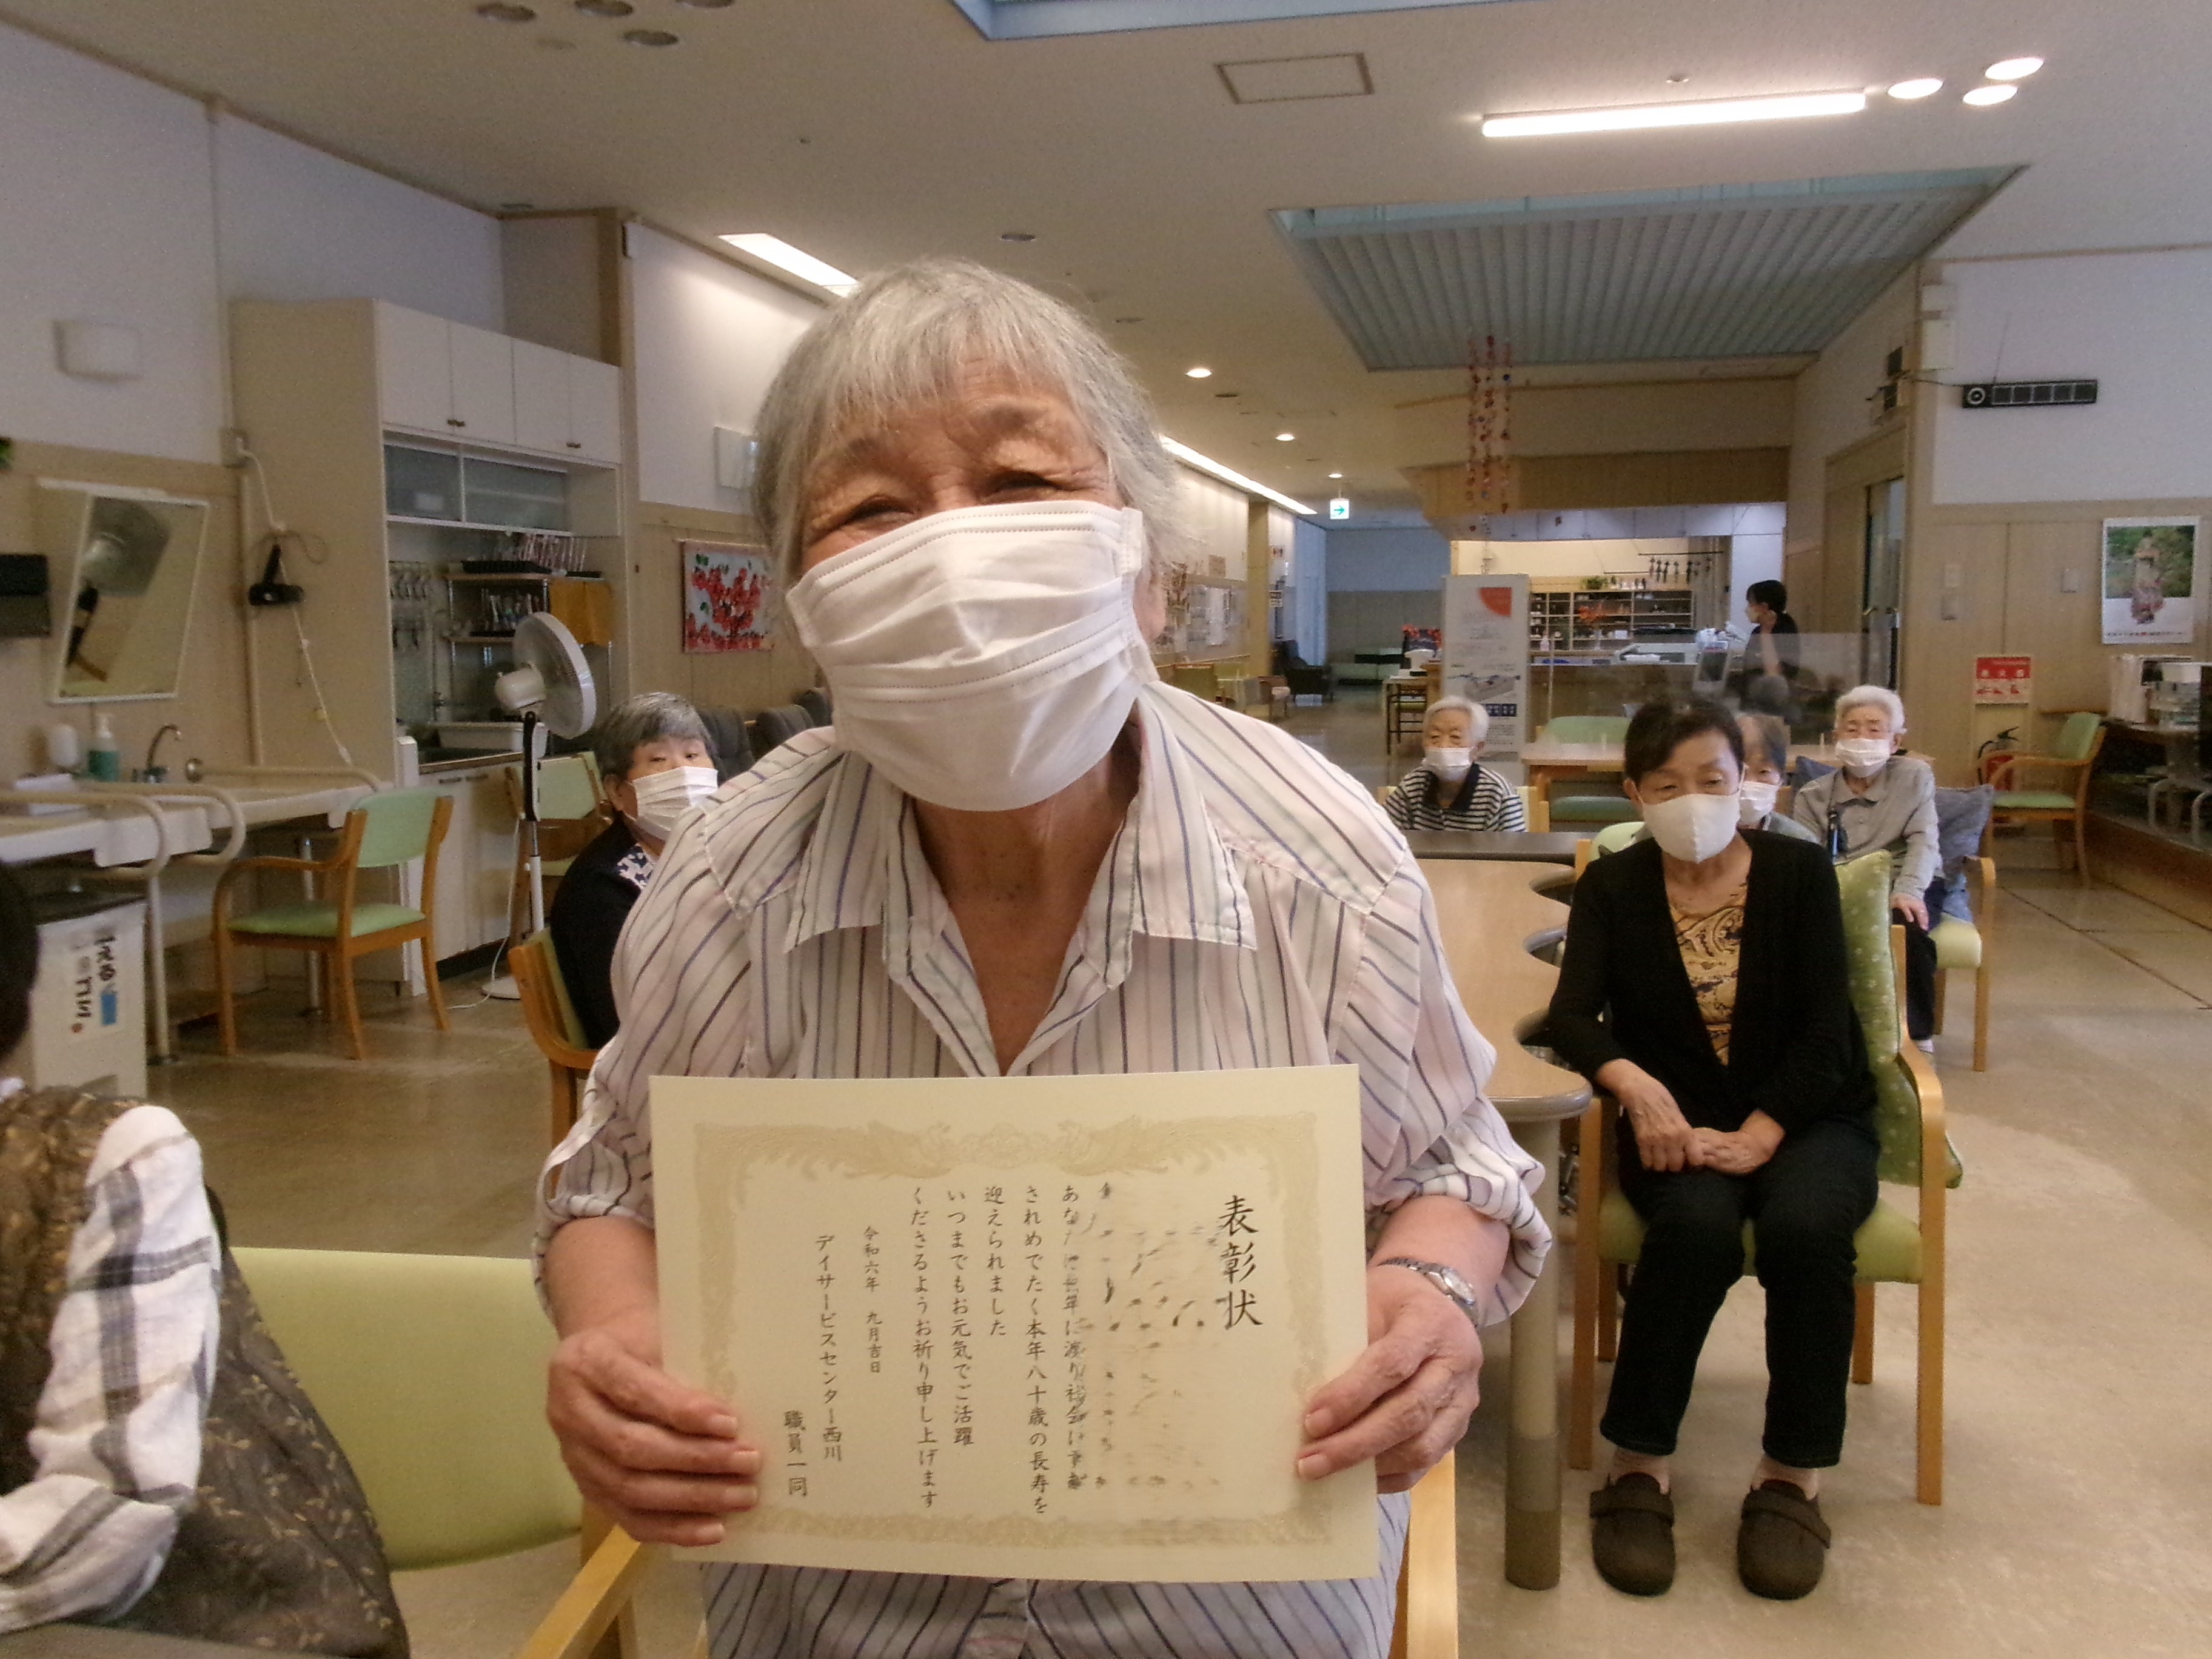 表彰状
あなたは長年に渡り社会に貢献
されめでたく本年八十歳の長寿を
迎えられました
いつまでもお元気でご活躍
くださるようお祈り申し上げます
令和六年 九月吉日
デイサービスセンター西川
職員一同